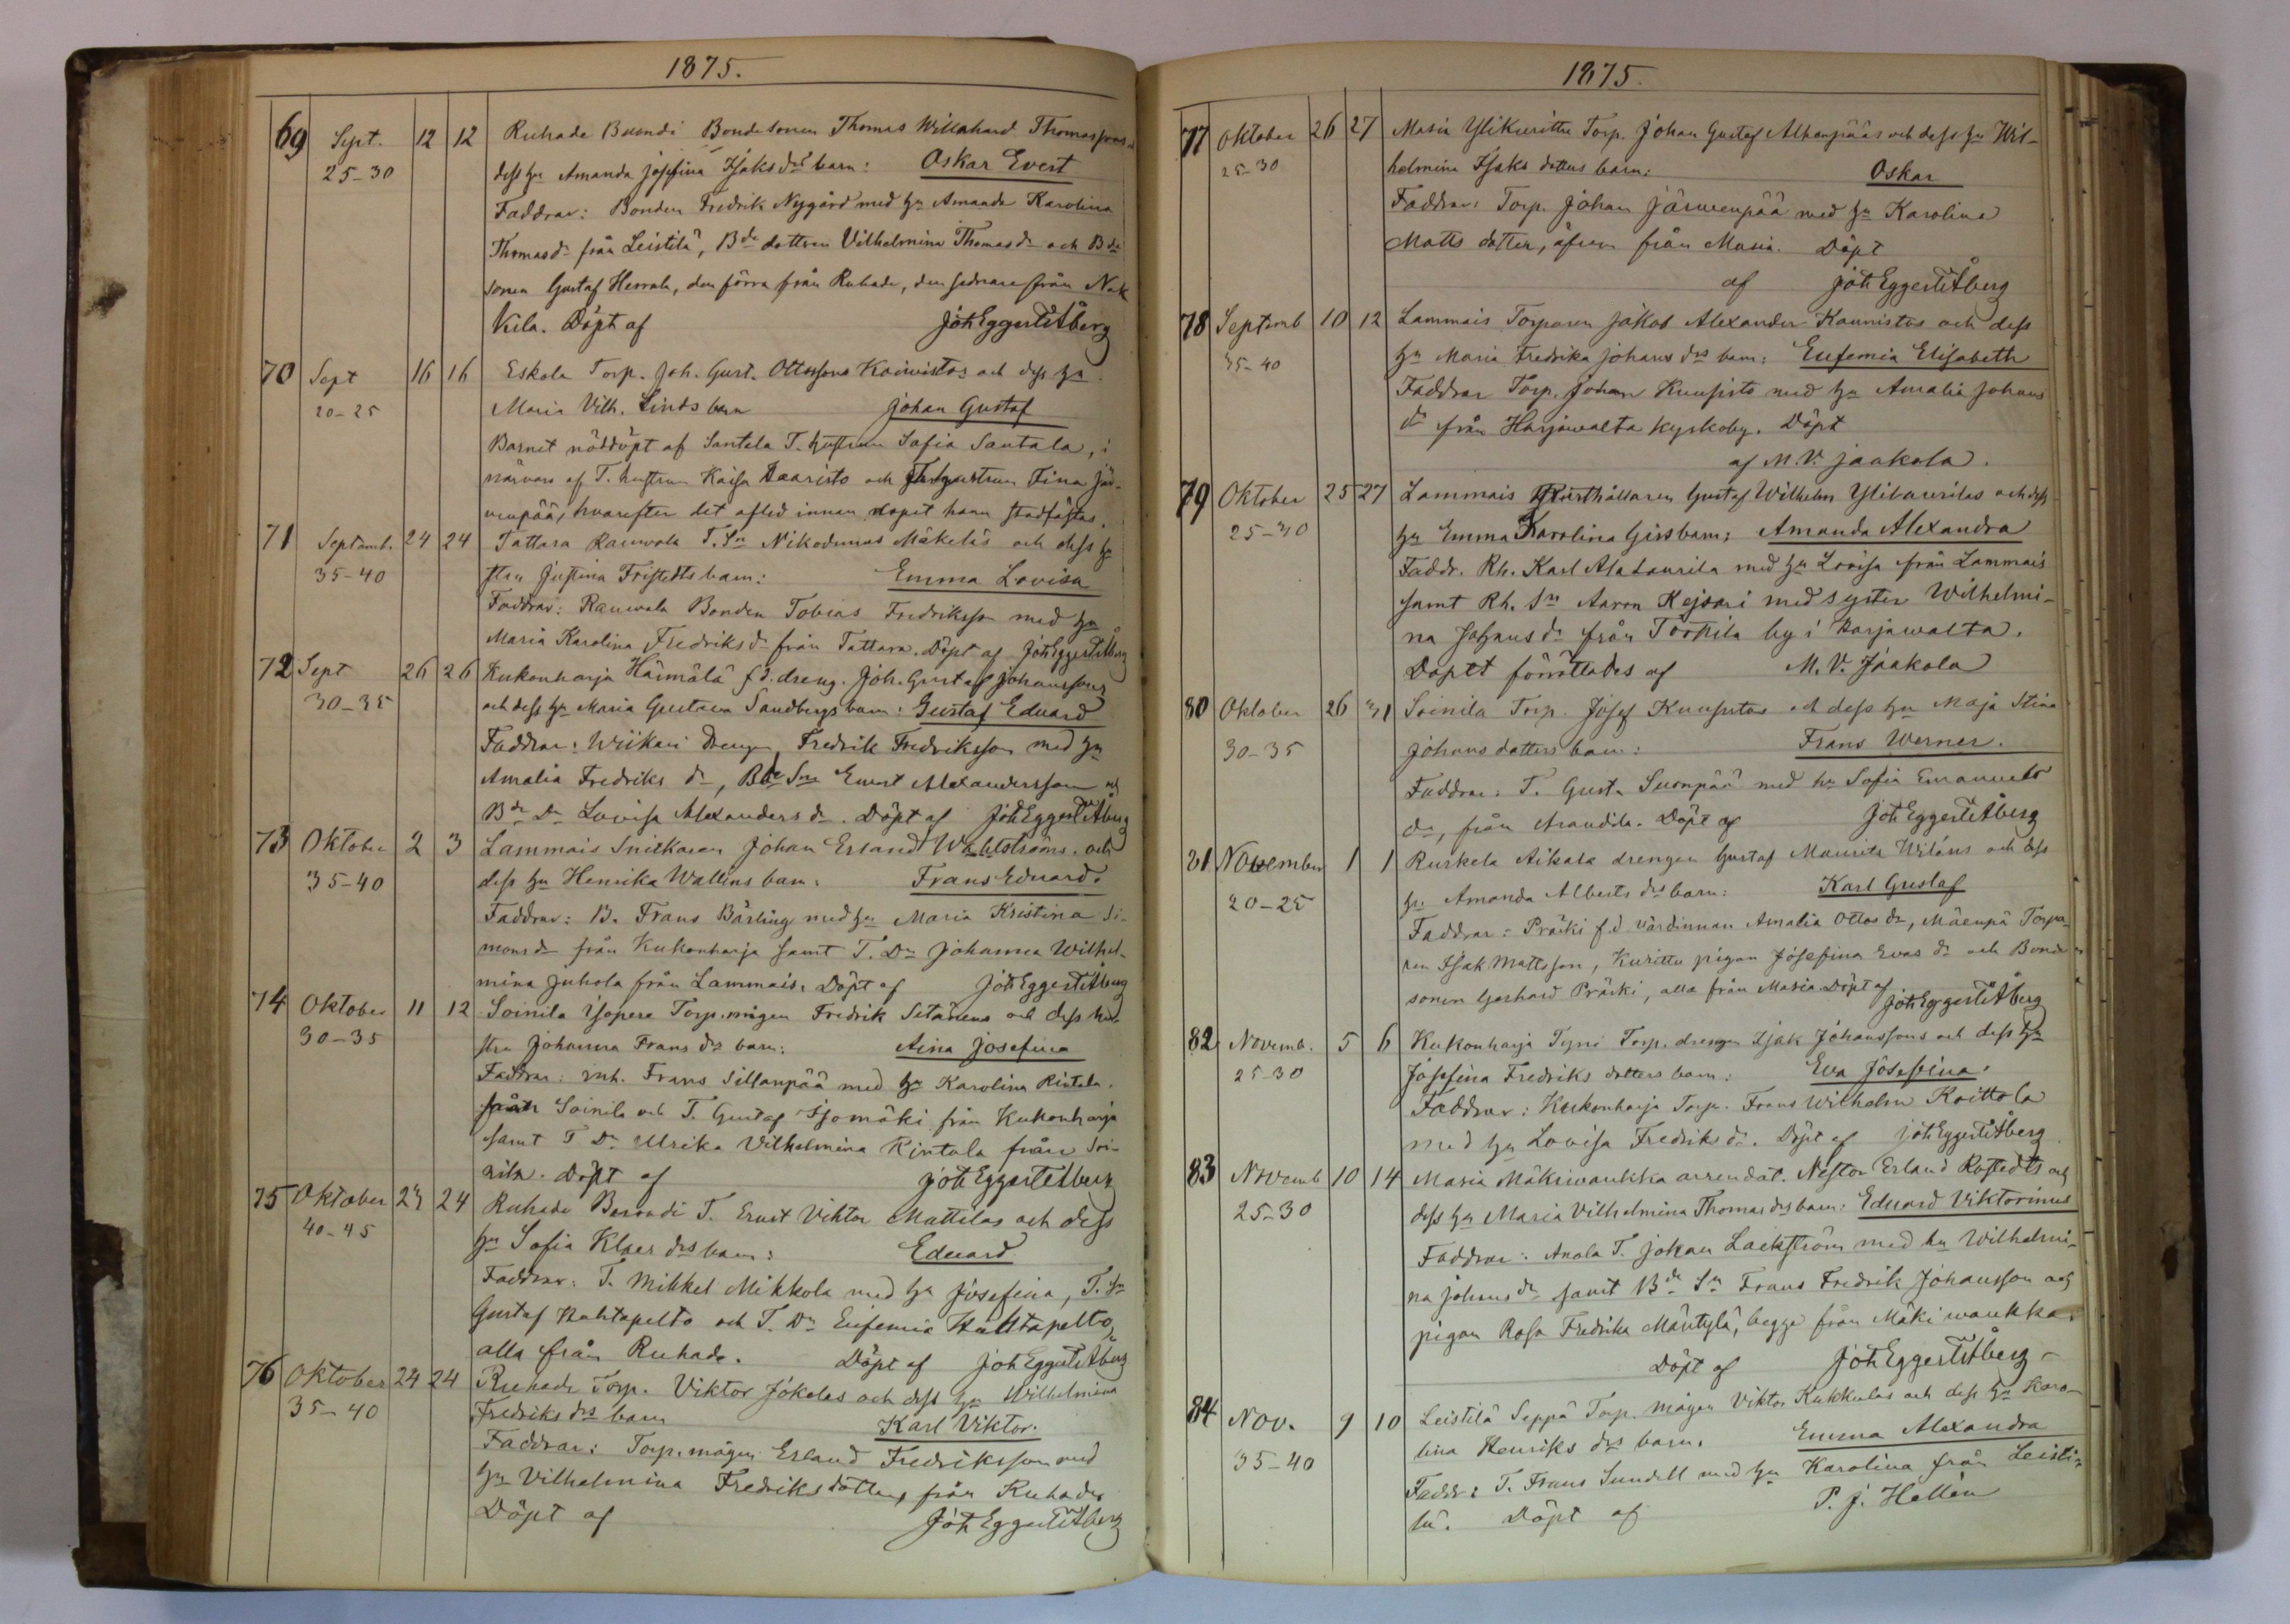 1875.
69 Sept. 12 12 Ruhade Buondi Bondesonen Thomas Willehard Thomassons o
25-30 dess hu Amanda Josefina Isaks drs barn: Oskar Evert
Faddrar: Bonden Fredrik Nygård med hu Amanda Karolina
Thomasdr från Leistilä, Bde dottren Vilhelmina Thomasdr och Bde
sonen Gustaf Herrala, den förra från Ruhade, den sednare från Nak
kila. Döpt af Joh Eggert Åberg
70 Sept 16 16 Eskola Torp. Joh. Gust. Ottossons Koivistos och dess hu
20-25 Maria Vilh. Linds barn Johan Gustaf
Barnet nöddöpt af Santala T. hustrun Sofia Santala, i
närvaro af T. hustrun Kaisa Laaristo och T. hustrun Fina Jär-
venpää, hvarefter det afled innan dopet hann stadfästas.
71 Septemb. 24 24 Tattara Rauwola T. Sn Nikodemus Mäkeläs och dess hu
35-40 stru Justina Fristedts barn: Emma Lovisa
Faddrar: Rauwola Bonden Tobias Fredriksson med hu
Maria Karolina Fredriks dr från Tattara. Döpt af Joh Eggert Åberg
72 Sept 26 26 Kukonharja Härmälä f.d. dreng. Joh. Gustaf Johanssons
30-35 och dess hu Maria Gustava Sandbergs barn: Gustaf Eduard
Faddrar: Wiikari Drengen Fredrik Fredriksson med hu
Amalia Fredriks dr, Bde Sn Evert Alexandersson och
Bde Dr Lovisa Alexanders dr. Döpt af Joh Eggert Åberg
73 Oktober 2 3 Lammais Snickaren Johan Erland Wahlströms och
35-40 dess hu Henrika Wallens barn: Frans Eduard.
Faddrar: B. Frans Bärling med hu Maria Kristina Si-
mons dr från Kukonharja samt T. Dr Johanna Wilhel-
mina Juhola från Lammais. Döpt af Joh Eggert Åberg
74 Oktober 11 12 Soinila Isopere Torp. mågen Fredrik Seténs och dess hu
30-35 stru Johanna Frans drs barn: Aina Josefina
Faddrar: inh. Frans Sillanpää med hu Karolina Rintala
från Soinila och T. Gustaf Isomäki från Kukonharja
samt T Dr Ulrika Vilhelmina Rintala från Soi-
nila. Döpt af Joh Eggert Åberg
75 Oktober 23 24 Ruhade T. Ernst Viktor Mattilas och dess
40-45 hu Sofia Klaes drs barn: Eduard
Faddrar: T. Mikkel Mikkola med hu Josefina, T. Sn
Gustaf Huhtapelto och T. Dr Eufemia Huhtapelto,
alla från Ruhade. Döpt af Joh Eggert Åberg
76 Oktober 24 24 Ruhade Torp. Viktor Jokelas och dess hu Wilhelmina
35-40 Fredriks drs barn Karl Viktor.
Faddrar: Torp. mågen Erland Fredriksson med
hu Vilhelmina Fredriksdotter, från Ruhade
Döpt af Joh Eggert Åberg
1875.
77 Oktober 26 27 Masia Ylikurittu Torp. Johan Gustaf Alhonpääs och dess hu Wil-
25-30 helmina Isaks dotters barn: Oskar
Faddrar: Torp. Johan Järwenpää med hu Karolina
Matts dotter, äfven från Masia. Döpt
af Joh Eggert Åberg
78 Septemb 10 12 Lammais Torparen Jakob Alexander Kaunistos och dess
35-40 hu Maria Fredrika Johans drs barn: Eufemia Elisabeth
Faddrar Torp. Johan Kuusisto med hu Amalia Johans
dr från Harjawalta Kyrkoby. Döpt
af M. V. Jaakola.
79 Oktober 25 27 Lammais Rusthållaren Gustaf Wilhelm Ylilaurilas och dess
25-30 hu Emma Karolina Girs barn: Amanda Alexandra
Faddr. Rh. Karl Alalaurila med hu Lovisa från Lammais
samt Rh. Sn Aaron Kejsari med syster Wilhelmi-
na Johans dr från Torttila by i Harjawalta.
Dopet förrättades af M. V. Jaakola
80 Oktober 26 31 Soinila Torp. Josef Kuusistos och dess hu Maja Stina
30-35 Johans dotters barn: Frans Werner.
Faddrar: T. Gusta Suonpää med hu Sofia Emanuels
dr, från Arandila. Döpt af Joh Eggert Åberg
81 November 1 1 Ruskela Aikala drengen Gustaf Mauritz Wiléns och dess
20-25 hu Amanda Alberts drs barn: Karl Gustaf
Faddrar: Präiki f.d värdinnan Amalia Ottos dr, Mäenpä Torpa-
ren Isak Mattsson, Kurittu pigan Josefina Evas dr och Bonde
sonen Gerhard Präiki, alla från Masia Döpt af Joh Eggert Åberg
82 Novemb. 5 6 Kukonharja Tyni Torp. drengen Isak Johanssons och dess hu
25-30 Josefina Fredriks dotters barn: Eva Josefina.
Faddrar: Kukonharja Torp. Frans Wilhelm Koittola
med hu Lovisa Fredriks dr. Döpt af Joh Eggert Åberg
83 Novemb 10 14 Masia Mäkiwaukka arrendat. Nestor Erland Rostedts och
25-30 dess hu Maria Vilhelmina Thomas drs barn: Eduard Viktorinus
Faddrar: Anola T. Johan Lackström med hu Wilhelmi-
na Johans dr samt Bde Sn Frans Fredrik Johansson och
pigan Rosa Fredrika Mäntylä, begge från Mäkiwaukka.
Döpt af Joh Eggert Åberg
84 Nov. 9 10 Leistilä Seppä Torp. mågen Viktor Kukkulas och dess hu Karo-
35-40 lina Henriks drs barn. Emma Alexandra
Faddr: T. Frans Sundell med hu Karolina från Leisti-
lä. Döpt af P. J. Hellén